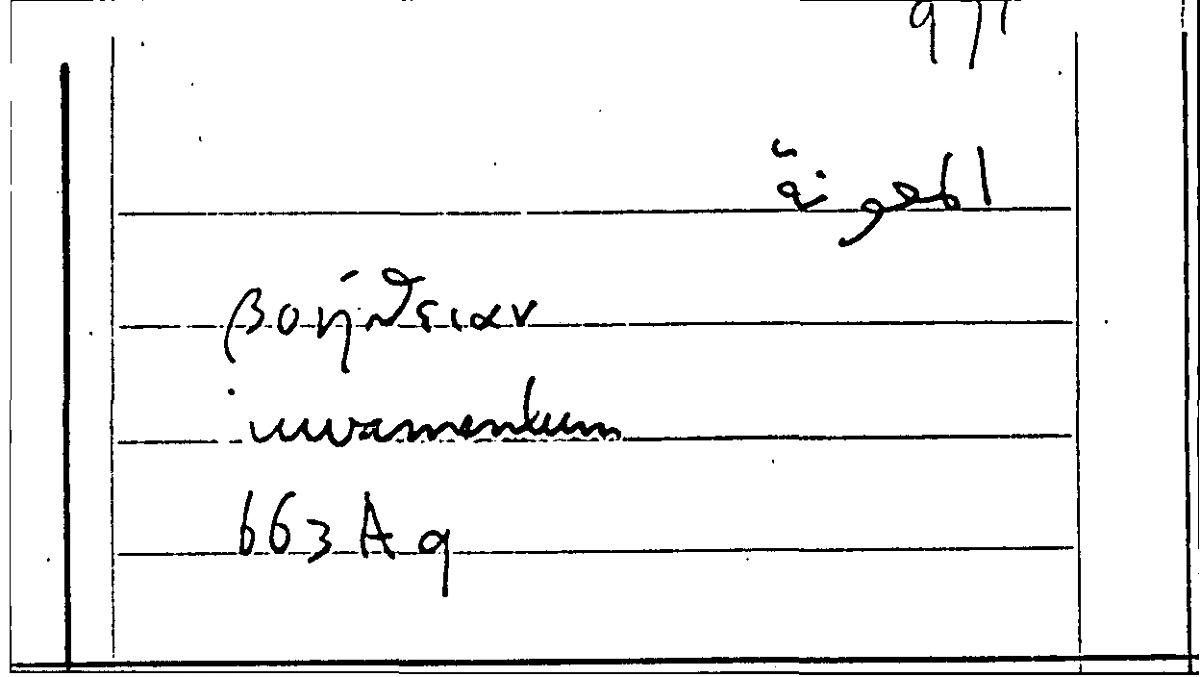 971
المعونة
βοήθειαν
iuvamentum
663 A 9